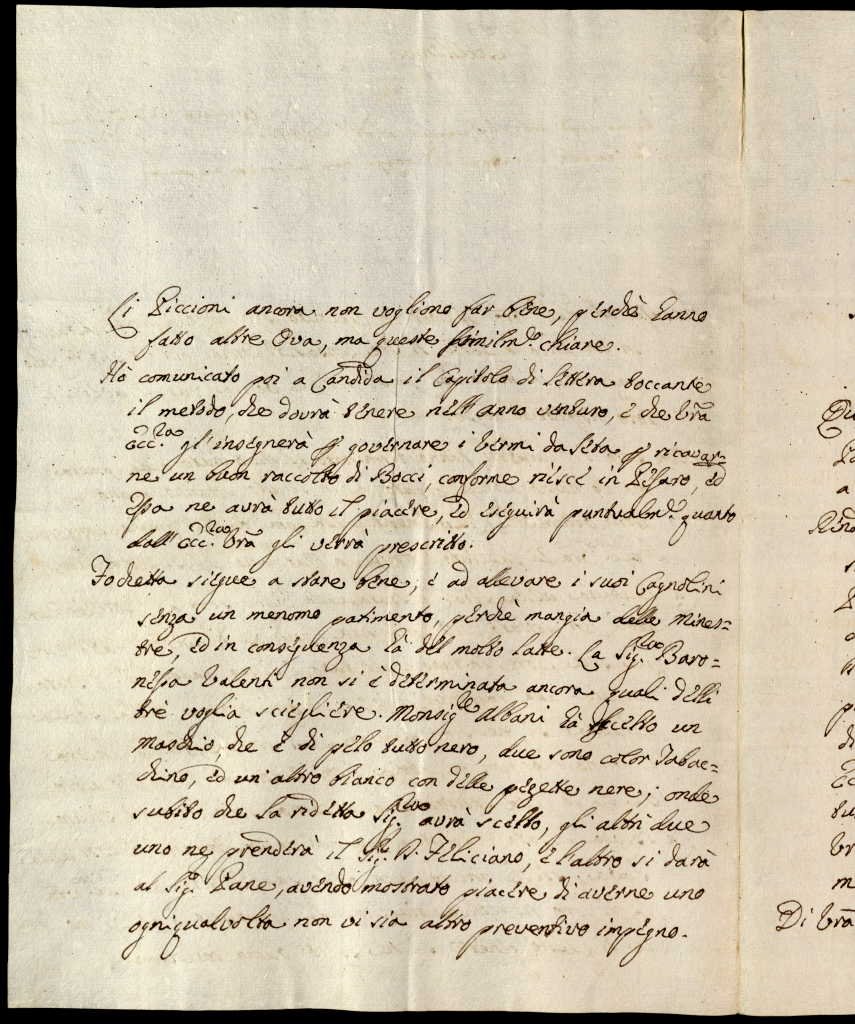 Li Piccioni ancora non vogliono far bene, perchè hanno
fatto altre Ova, ma queste similm.e chiare.
Hò comunicato poi a Candida il Capitolo di lettera toccante
il metodo, che dovrà tenere nell'anno venturo, e che Vrã
Ecc.za gl'insegnerà p governare i Vermi da Seta p ricavar=
ne un buon raccolto di Bocci, conforme riesce in Pesaro, ed
Essa ne avrà tutto il piacere, ed eseguirà puntualm.e quanto
dall'Ecc.za Vrã gli verrà prescritto.
siegue a stare bene, e ad allevare i suoi Cagnolini
senza un menomo patimento, perchè mangia delle Mines=
tre, ed in conseguenza hà del molto latte. La Sig.ra Baro=
nessa Valenti non si è determinata ancora quali delli
trè voglia sciegliere. Monsig.re Albani hà scelto un
Maschio, che è di pelo tutto nero, due sono color Tabac=
chino, ed un'altro bianco con delle pezzette nere; onde
subito che la ridetta Sig.ra avrà scelto, gli altri due
uno ne prenderà il Sig.r D. Feliciano, e l'altro si darà
al Sig.r Pane, avendo mostrato piacere di averne uno
ogniqualvolta non vi sia altro preventivo impegno.
Di Vrã